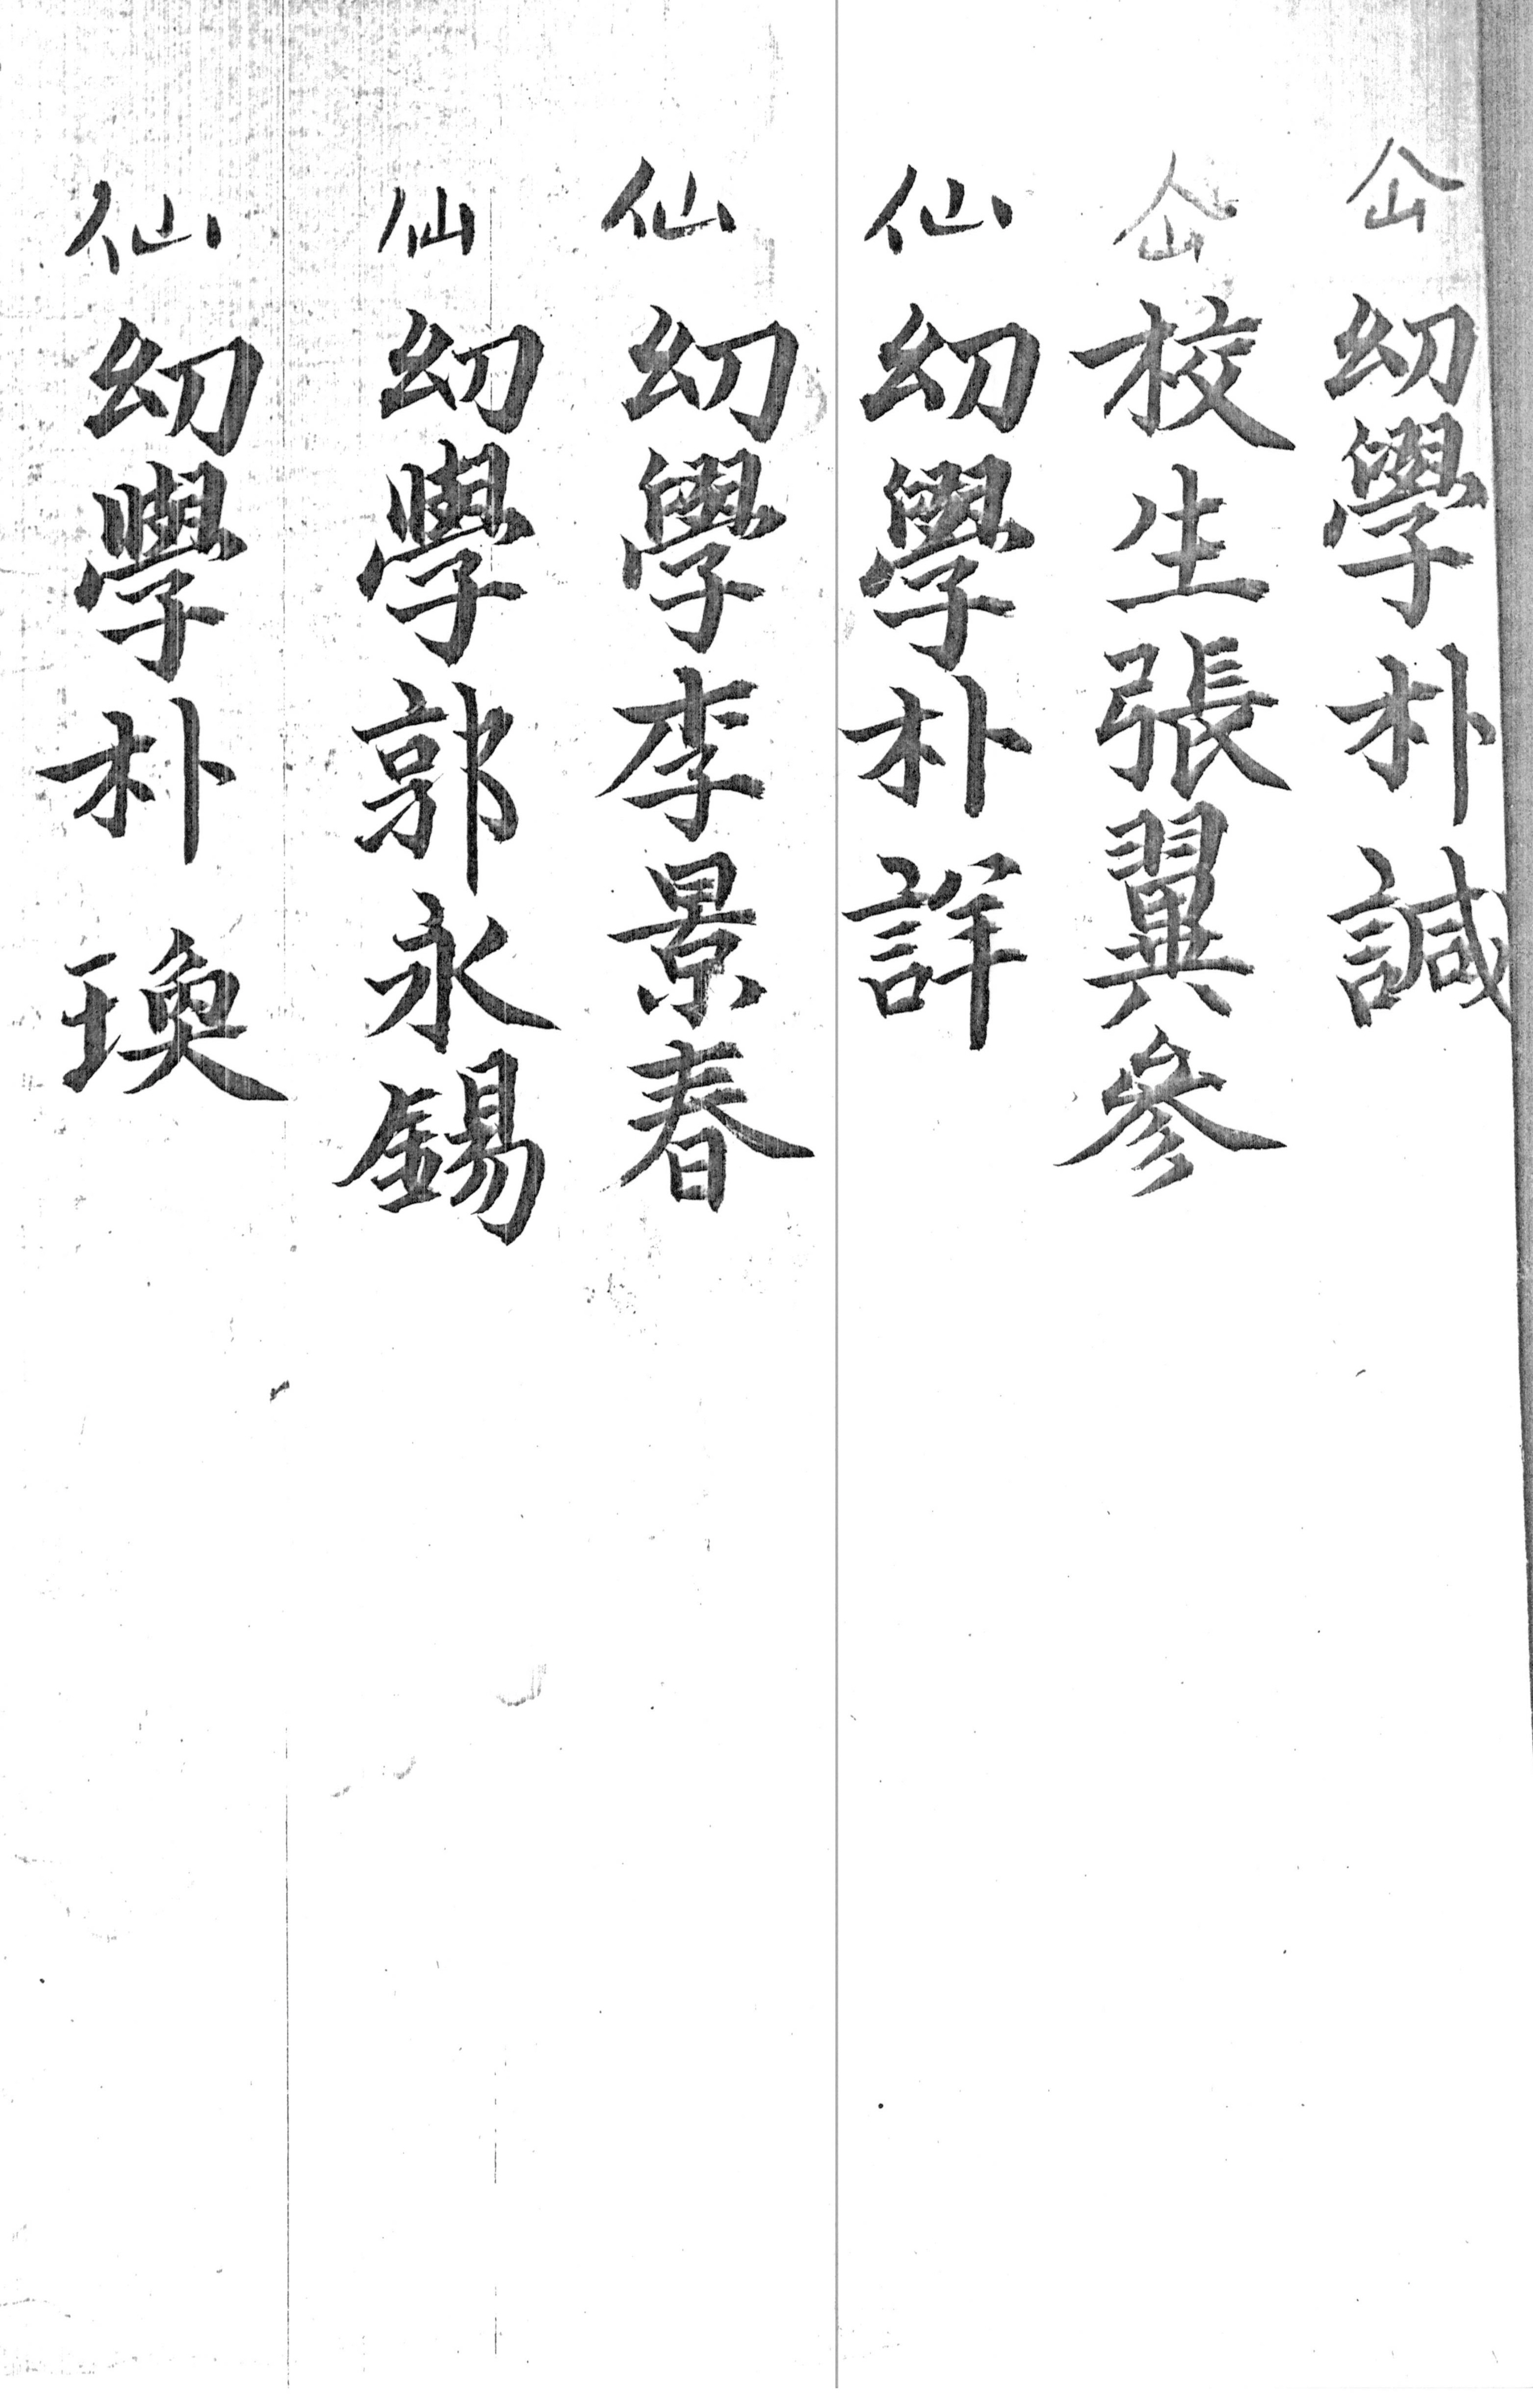 仚 幼學朴諴
仚 校生張翼參
仙 幼學朴詳
仙 幼學李景春
仙 幼學郭永錫
仙 幼學朴瑍